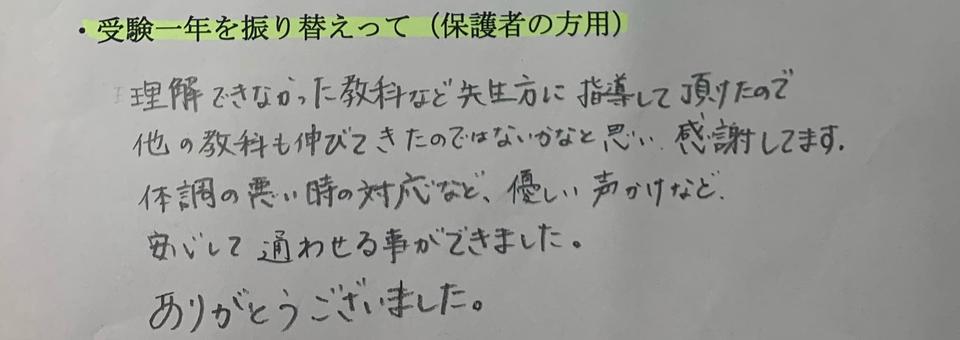 ・受験一年を振り替えって（保護者の方用）
理解できなかった教科など先生方に指導して頂けたので
他の教科も伸びてきたのではないかなと思い、感謝してます.
体調の悪い時の対応など、優しい声かけなど、
安心して通わせる事ができました。
ありがとうございました。